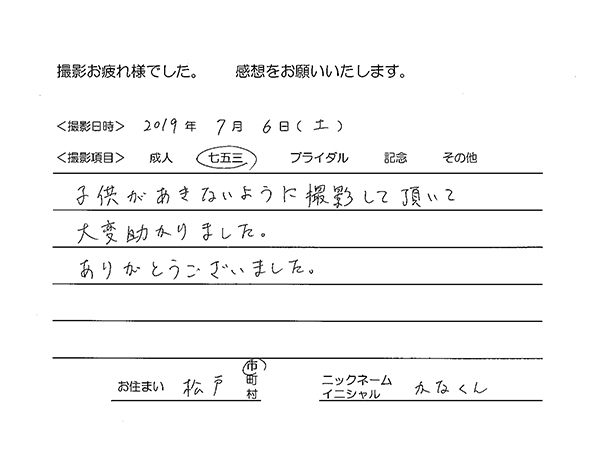 撮影お疲れ様でした。 感想をお願いいたします。
＜撮影日時＞ 2019 年 7 月 6 日(土)
＜撮影項目＞ 成人 七五三 ブライダル 記念 その他
子供があきないように撮影して頂いて
大変助かりました。
ありがとうございました。
お住まい 松戸 市 町 村 ニックネーム イニシャル かなくん